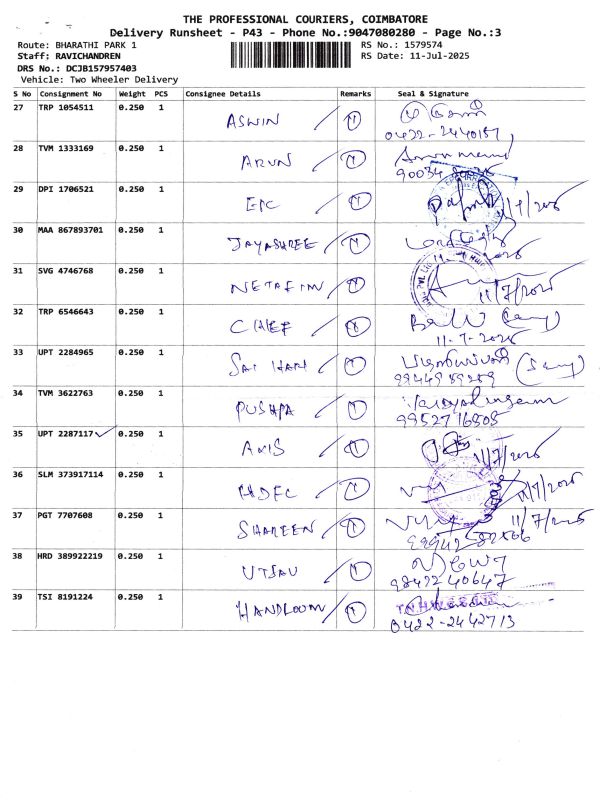 THE PROFESSIONAL COURIERS, COIMBATORE
Delivery Runsheet - P43 - Phone No.:9047080280 - Page No.:3
Route: BHARATHI PARK 1 RS No.: 1579574
Staff: RAVICHANDREN RS Date: 11-Jul-2025
DRS No.: DCJB157957403
Vehicle: Two Wheeler Delivery
S No Consignment No Weight PCS Consignee Details Remarks Seal & Signature
27 TRP 1054511 0.250 1 ASWIN
0422-2440157
28 TVM 1333169 0.250 1 ARUN
90034
29 DPI 1706521 0.250 1 EPC
30 MAA 867893701 0.250 1 JAYASHREE
31 SVG 4746768 0.250 1 NETAFIM
11/7/2025
32 TRP 6546643 0.250 1 CHIEF
11-7-2025
33 UPT 2284965 0.250 1 SAI HARI
99449 89289
34 TVM 3622763 0.250 1 PUSHPA
99527 16505
35 UPT 2287117 0.250 1 AXIS
11/7/2025
36 SLM 373917114 0.250 1 HDFC
11/7/2025
37 PGT 7707608 0.250 1 SHAREEN
11/7/2025
38 HRD 389922219 0.250 1 UTSAV
98422 40647
39 TSI 8191224 0.250 1 HANDLOOM
0422-2442713